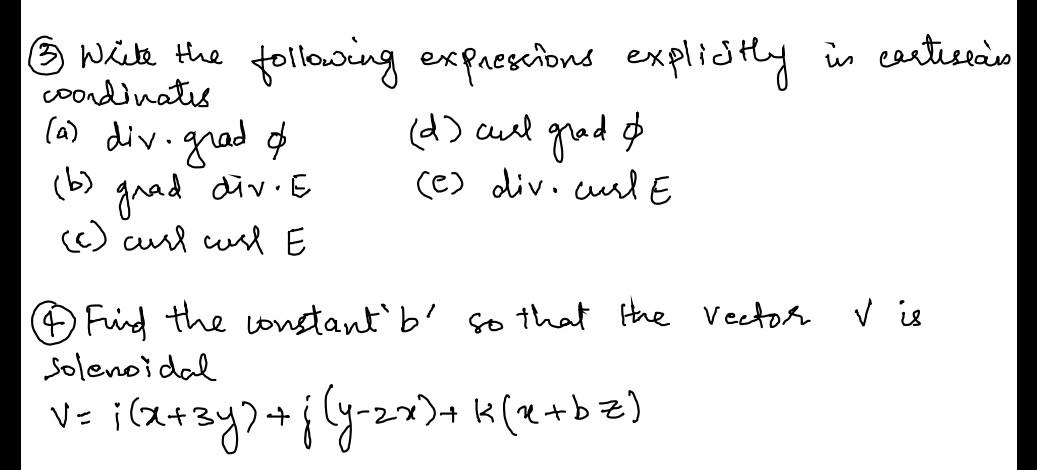 ③ Write the following expressions explicitly in cartesian
coordinates
(a) div. grad ϕ (d) curl grad ϕ
(b) grad div. E (e) div. curl E
(c) curl curl E
④ Find the constant 'b' so that the vector V is
solenoidal
V = i(x+3y) + j(y-2x) + k(x+bz)